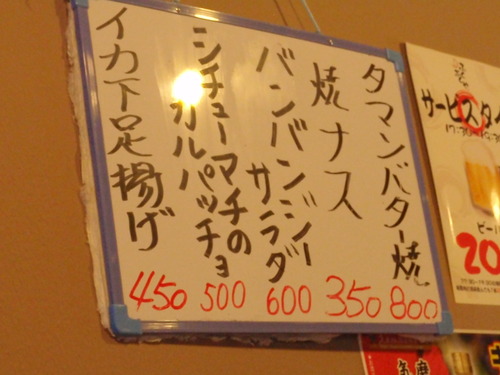 タマンバター焼
800
焼ナス
350
バンバンジー
サラダ
600
シチューマチの
カルパッチョ
500
イカ下足揚げ
450
サービスタイ
17:30~
ビー
20